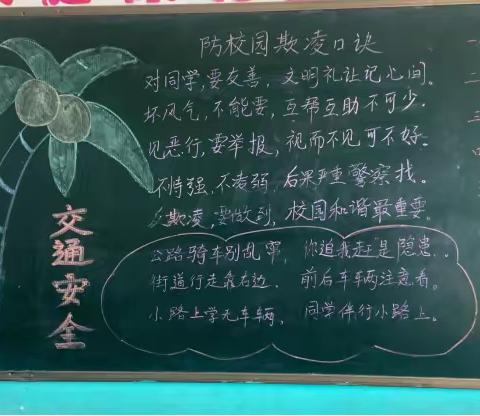 防校园欺凌口诀
对同学,要友善，文明礼让记心间。
坏风气，不能要，互帮互助不可少.
见恶行,要举报，视而不见可不好。
不恃强，不凌弱，后果严重警察找。
欺凌，要做到，校园和谐最重要。
公路骑车别乱窜，你追我赶是隐患..
街道行走靠右边．前后车辆注意看。
小路上学无车辆，同学伴行小路上。
交通安全
一
二
三